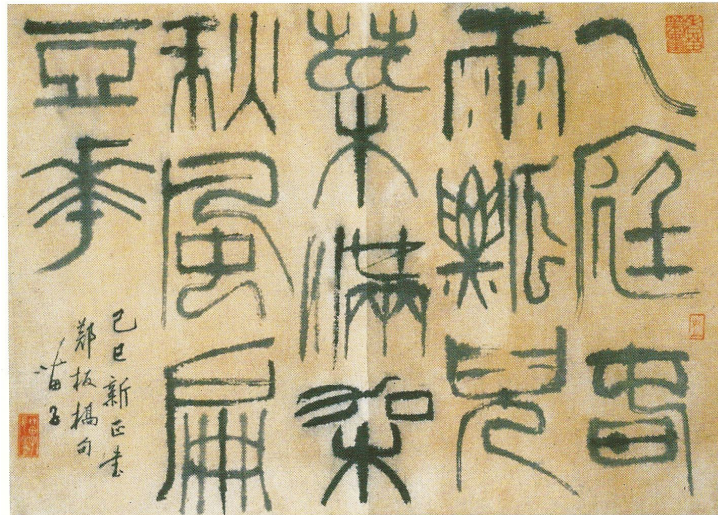 一庭春
雨瓢兒
菜滿架
秋風扁
豆華
己巳新正書
鄭板橋句